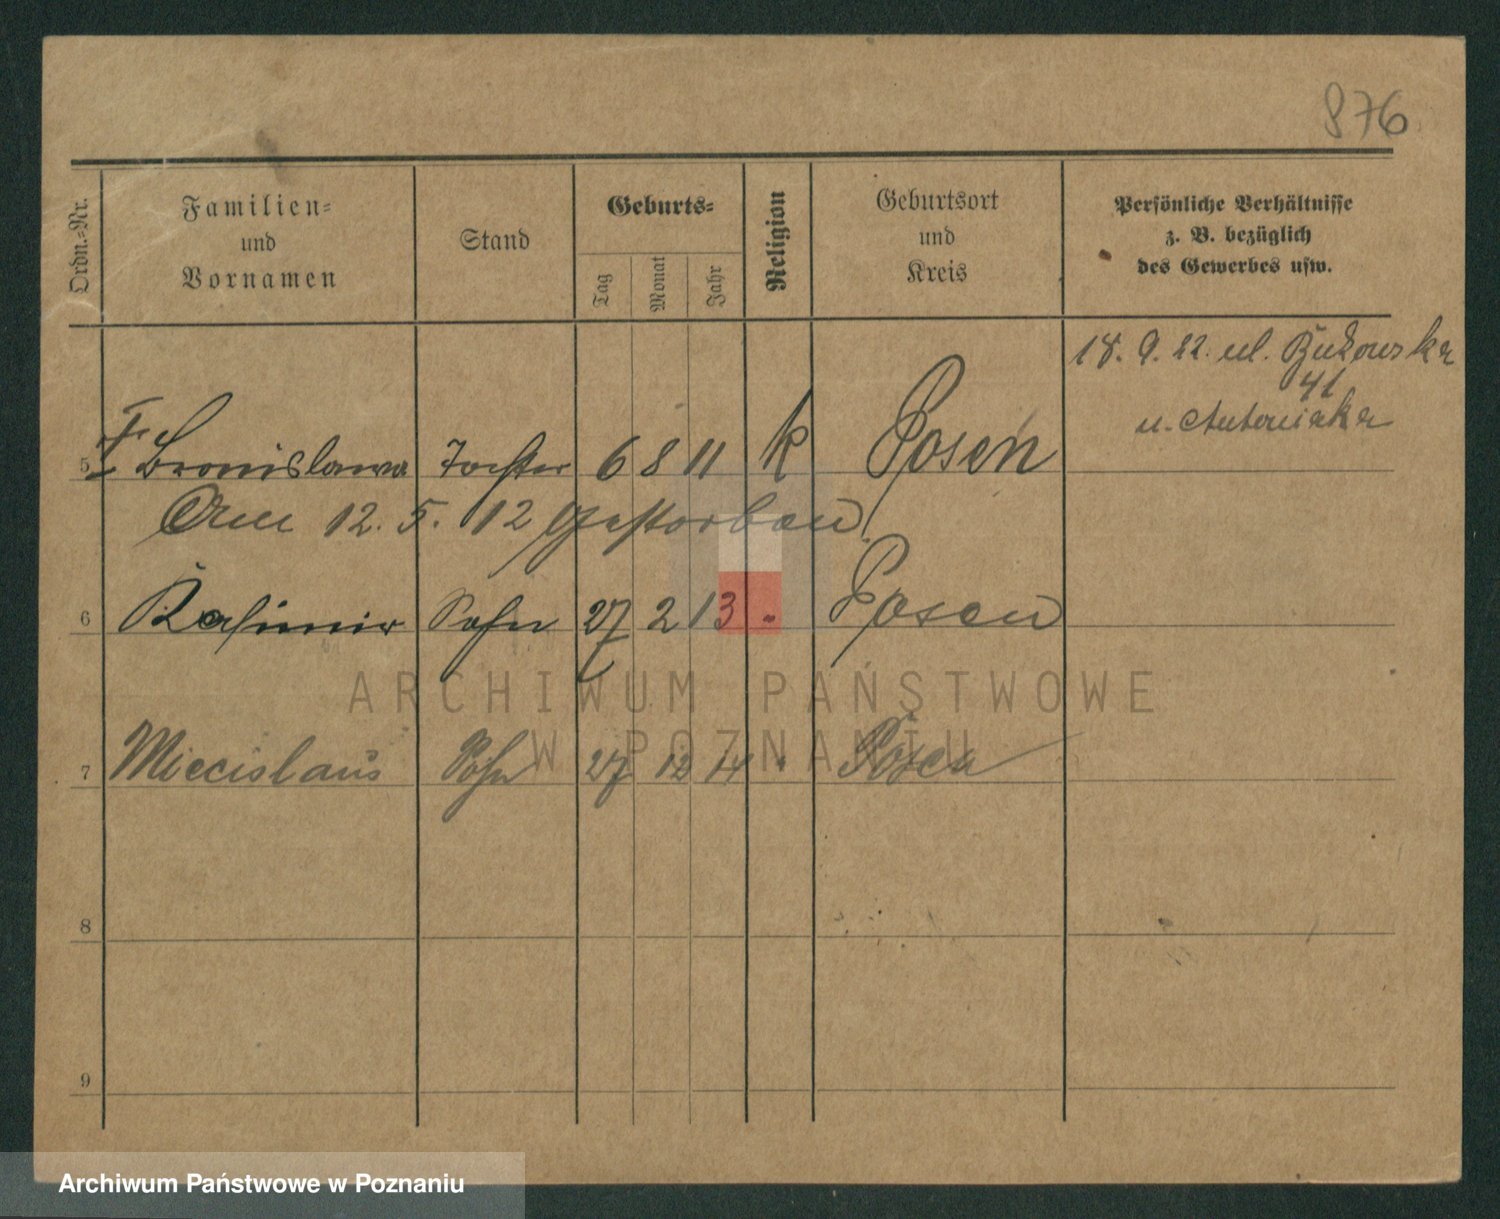 876
Ordn.-Nr.
Familien-
und
Vornamen
Stand
Geburts-
Tag
Monat
Jahr
Religion
Geburtsort
und
Kreis
Persönliche Verhältnisse
z. B. bezüglich
des Gewerbes usw.
18. 9. 22. ul. Bukowska
41
u. Antoniaka
5 Bronislawa Tochter 6 8 11 k Posen
Am 12. 5. 12 gestorben
6 Kasimir Sohn 27 2 13 " Posen
7 Miecislaus Sohn 27 12 14 " Posen
8
9
ARCHIWUM PAŃSTWOWE
W POZNANIU
Archiwum Państwowe w Poznaniu